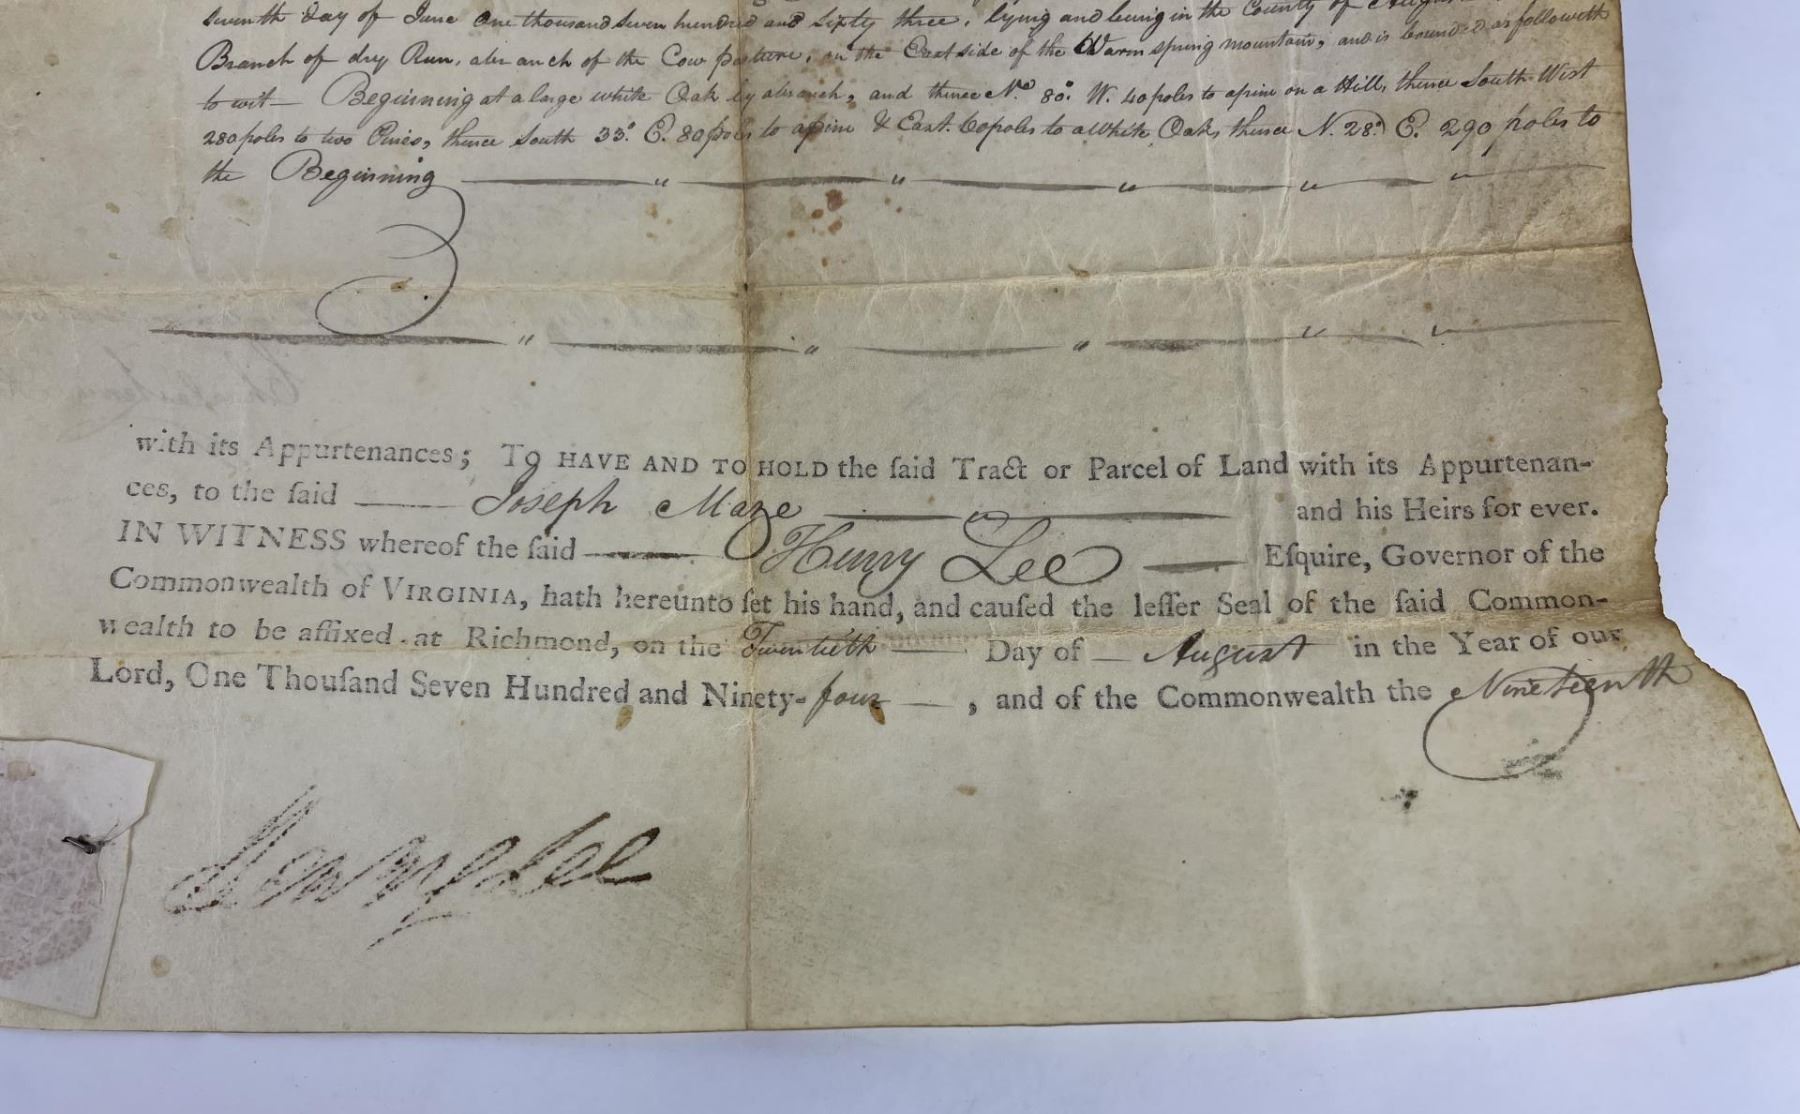 seventh day of June One thousand seven hundred and sixty three, lying and being in the County of Augusta
Branch of dry Run, abranch of the Cow pasture, on the East side of the Warm spring mountain, and is bounded as followeth
to wit — Beginning at a large white Oak by abranch, and thence No. 80.° W. 40 poles to apine on a Hill, thence South West
280 poles to two Pines, thence South 33.° E. 80 poles to apine & East. 60 poles to a White Oak, thence N. 28.° E. 290 poles to
the Beginning
with its Appurtenances; TO HAVE AND TO HOLD the ſaid Tract or Parcel of Land with its Appurtenan-
ces, to the ſaid — Joseph Maze — and his Heirs for ever.
IN WITNESS whereof the ſaid — Henry Lee — Eſquire, Governor of the
Commonwealth of VIRGINIA, hath hereunto ſet his hand, and cauſed the leſſer Seal of the ſaid Common-
wealth to be affixed at Richmond, on the Twentieth — Day of — August in the Year of our
Lord, One Thouſand Seven Hundred and Ninety-four —, and of the Commonwealth the Nineteenth
Henry Lee